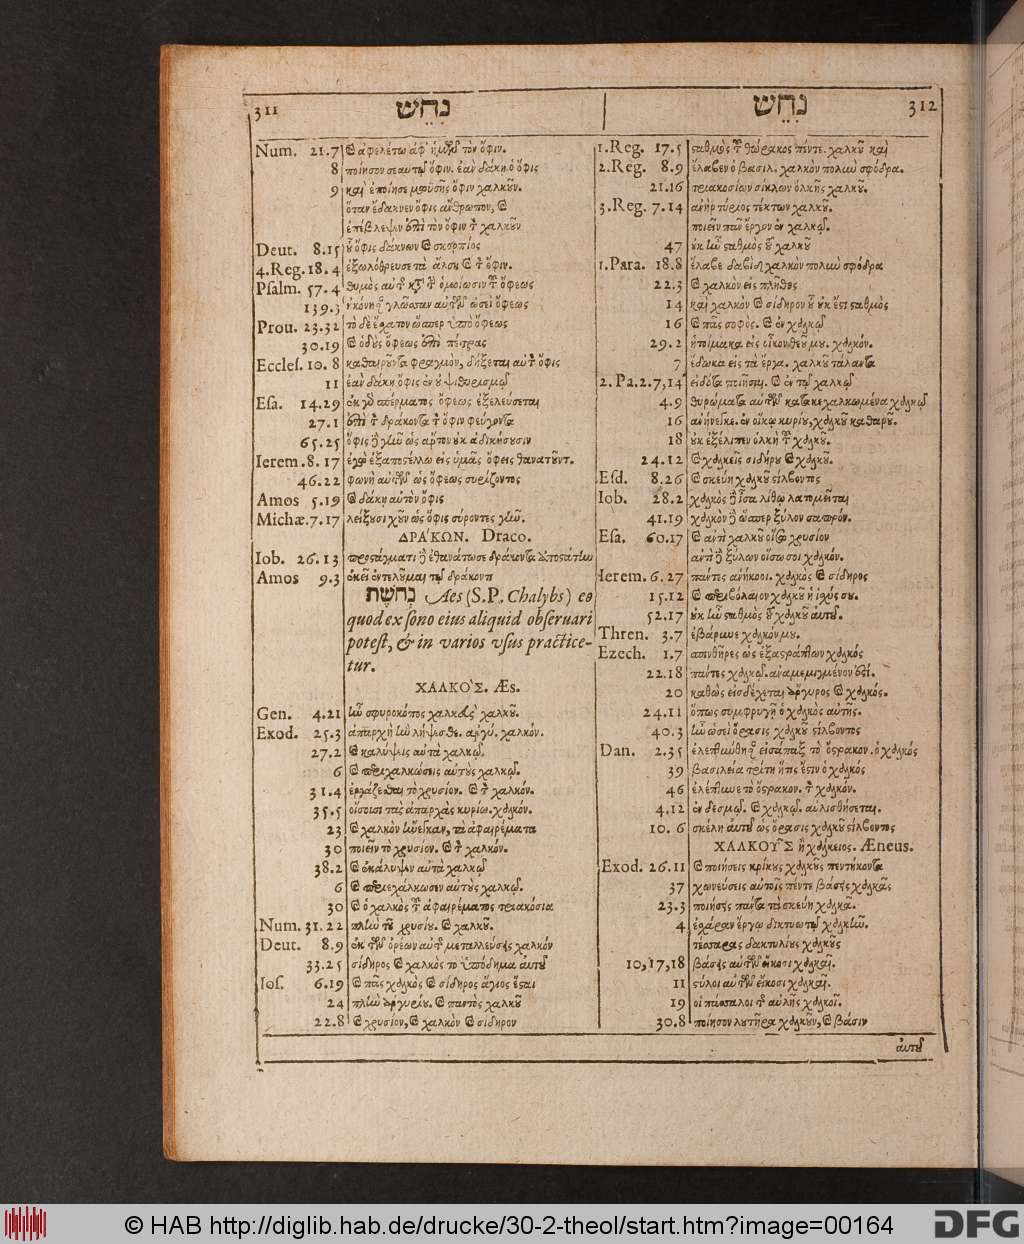 311 נִחֵשׁ
נִחֵשׁ 312
Num. 21.7 καὶ ἀφελέτω ἀφ' ἡμῶν τὸν ὄφιν.
8 ποίησον σεαυτῷ ὄφιν. ἐὰν δάκῃ ὁ ὄφις
9 καὶ ἐποίησε μωυσῆς ὄφιν χαλκοῦν.
ὅταν ἔδακνεν ὄφις ἄνθρωπον, καὶ
ἐπέβλεψεν ἐπὶ τὸν ὄφιν τὸν χαλκοῦν
Deut. 8.15 οὗ ὄφις δάκνων καὶ σκορπίος
4.Reg.18.4 ἐξωλόθρευσε τὰ ἄλση καὶ τὸν ὄφιν.
Psalm. 57.4 θυμὸς αὐτοῖς κατὰ τὴν ὁμοίωσιν τοῦ ὄφεως
139.3 ἠκόνησαν γλῶσσαν αὐτῶν ὡσεὶ ὄφεως
Prou. 23.32 τὸ δὲ ἔσχατον ὥσπερ ὑπὸ ὄφεως
30.19 καὶ ὁδοὺς ὄφεως ἐπὶ πέτρας
Eccles. 10.8 καθαιροῦντα φραγμὸν, δήξεται αὐτὸν ὄφις
11 ἐὰν δάκῃ ὄφις ἐν οὐ ψιθυρισμῷ
Esa. 14.29 ἐκ γὰρ σπέρματος ὄφεως ἐξελεύσεται
27.1 ἐπὶ τὸν δράκοντα τὸν ὄφιν φεύγοντα
65.25 ὄφις δὲ γῆν ὡς ἄρτον οὐκ ἀδικήσουσιν
Ierem.8.17 ἐγὼ ἐξαποστέλλω εἰς ὑμᾶς ὄφεις θανατοῦντ.
46.22 φωνὴ αὐτῶν ὡς ὄφεως συρίζοντος
Amos 5.19 καὶ δάκῃ αὐτὸν ὄφις
Michæ.7.17 λείξουσι χοῦν ὡς ὄφις σύροντες γῆν.
ΔΡΑΚΩΝ. Draco.
Iob. 26.13 προστάγματι δὲ ἐθανάτωσε δράκοντα ἀποστάτην
Amos 9.3 ἐκεῖ ἐντελοῦμαι τῷ δράκοντι
נְחֹשֶׁת Aes (S.P. Chalybs) eo
quod ex sono eius aliquid obseruari
potest, & in varios vsus practice-
tur.
ΧΑΛΚΟΣ. Æs.
Gen. 4.21 ἦν σφυροκόπος χαλκεὺς χαλκοῦ.
Exod. 25.3 ἀπαρχὴ ἣν λήψεσθε. ἀργύ. χαλκόν.
27.2 καὶ καλύψεις αὐτὰ χαλκῷ.
6 καὶ περιχαλκώσεις αὐτοὺς χαλκῷ.
31.4 ἐργάζεσθαι τὸ χρυσίον. καὶ τὸν χαλκόν.
35.5 οἴσουσι τὰς ἀπαρχὰς κυρίῳ. χαλκόν.
23 καὶ χαλκὸν ἤνεγκαν, τὰ ἀφαιρέματα
30 ποιεῖν τὸ χρυσίον. καὶ τὸν χαλκόν.
38.2 καὶ ἐκάλυψεν αὐτὰ χαλκῷ
6 καὶ περιεχάλκωσεν αὐτοὺς χαλκῷ.
30 καὶ ὁ χαλκὸς τοῦ ἀφαιρέματος τριακόσια
Num. 31.22 πλὴν τοῦ χρυσίου. καὶ χαλκοῦ.
Deut. 8.9 ἐκ τῶν ὀρέων αὐτῆς μεταλλεύσεις χαλκόν
33.25 σίδηρος καὶ χαλκὸς τὸ ὑπόδημα αὐτοῦ
Ios. 6.19 καὶ πᾶς χαλκὸς καὶ σίδηρος ἅγιος ἔσται
24 πλὴν ἀργυρίου. καὶ παντὸς χαλκοῦ
22.8 καὶ χρυσίον, καὶ χαλκὸν καὶ σίδηρον
1.Reg. 17.5 σταθμὸς τοῦ θώρακος πέντε. χαλκοῦ καὶ
2.Reg. 8.9 ἔλαβεν ὁ βασιλ. χαλκὸν πολὺν σφόδρα.
21.16 τριακοσίων σίκλων ὁλκῆς χαλκοῦ.
3.Reg. 7.14 ἀνὴρ τύριος τέκτων χαλκοῦ.
ποιεῖν πᾶν ἔργον ἐν χαλκῷ.
47 οὐκ ἦν σταθμὸς τοῦ χαλκοῦ
1.Para. 18.8 ἔλαβε δαβὶδ χαλκὸν πολὺν σφόδρα
22.3 καὶ χαλκὸν εἰς πλῆθος
14 καὶ χαλκὸν καὶ σίδηρον οὗ οὐκ ἔστι σταθμὸς
16 καὶ πᾶς σοφὸς. καὶ ἐν χαλκῷ
29.2 ἡτοίμακα εἰς οἶκον θεοῦ μου. χαλκόν.
7 ἔδωκα εἰς τὰ ἔργα. χαλκοῦ τάλαντα
2.Pa.2.7,14 εἰδότα ποιῆσαι. καὶ ἐν τῷ χαλκῷ
4.9 θυρώματα αὐτῶν κατακεχαλκωμένα χαλκῷ
16 ἀνήνεγκε. ἐν οἴκῳ κυρίου, χαλκοῦ καθαροῦ.
18 οὐκ ἐξέλιπεν ὁλκὴ τοῦ χαλκοῦ.
24.12 καὶ χαλκεῖς σιδήρου καὶ χαλκοῦ.
Esd. 8.26 καὶ σκεύη χαλκοῦ στίλβοντος
Iob. 28.2 χαλκὸς δὲ ἴσα λίθῳ λατομεῖται
41.19 χαλκὸν δὲ ὥσπερ ξύλον σαπρόν.
Esa. 60.17 καὶ ἀντὶ χαλκοῦ οἴσω χρυσίον
ἀντὶ δὲ ξύλων οἴσω σοι χαλκόν.
Ierem. 6.27 πάντες ἀνήκοοι. χαλκὸς καὶ σίδηρος
15.12 καὶ περιβόλαιον χαλκοῦ ἡ ἰσχύς σου.
52.17 οὐκ ἦν σταθμὸς τοῦ χαλκοῦ αὐτοῦ.
Thren. 3.7 ἐβάρυνε χαλκόν μου.
Ezech. 1.7 σπινθῆρες ὡς ἐξαστράπτων χαλκός
22.18 πάντες χαλκῷ. ἀναμεμιγμένον ἐστί.
20 καθὼς εἰσδέχεται ἄργυρος καὶ χαλκός.
24.11 ὅπως συμφρυγῇ ὁ χαλκὸς αὐτῆς.
40.3 ἦν ὡσεὶ ὅρασις χαλκοῦ στίλβοντος
Dan. 2.35 ἐλεπτύνθησαν εἰσάπαξ τὸ ὄστρακον. ὁ χαλκός
39 βασιλεία τρίτη ἥτις ἔστιν ὁ χαλκός
46 ἐλέπτυνε τὸ ὄστρακον. τὸν χαλκόν.
4.12 ἐν δεσμῷ. καὶ χαλκῷ. αὐλισθήσεται.
10.6 σκέλη αὐτοῦ ὡς ὅρασις χαλκοῦ στίλβοντος
ΧΑΛΚΟΥΣ ἢ χάλκειος. Æneus.
Exod. 26.11 καὶ ποιήσεις κρίκους χαλκοῦς πεντήκοντα
37 χωνεύσεις αὐτοῖς πέντε βάσεις χαλκᾶς
23.3 ποιήσεις πάντα τὰ σκεύη χαλκᾶ.
4 ἐσχάραν ἔργῳ δικτυωτῷ χαλκῆν.
τέσσαρας δακτυλίους χαλκοῦς
10,17,18 βάσεις αὐτῶν εἴκοσι χαλκαῖ.
11 στύλοι αὐτῶν εἴκοσι χαλκαῖ.
19 οἱ πάσσαλοι τῆς αὐλῆς χαλκοῖ.
30.8 ποίησον λουτῆρα χαλκοῦν, καὶ βάσιν
αὐτοῦ
© HAB http://diglib.hab.de/drucke/30-2-theol/start.htm?image=00164
DFG